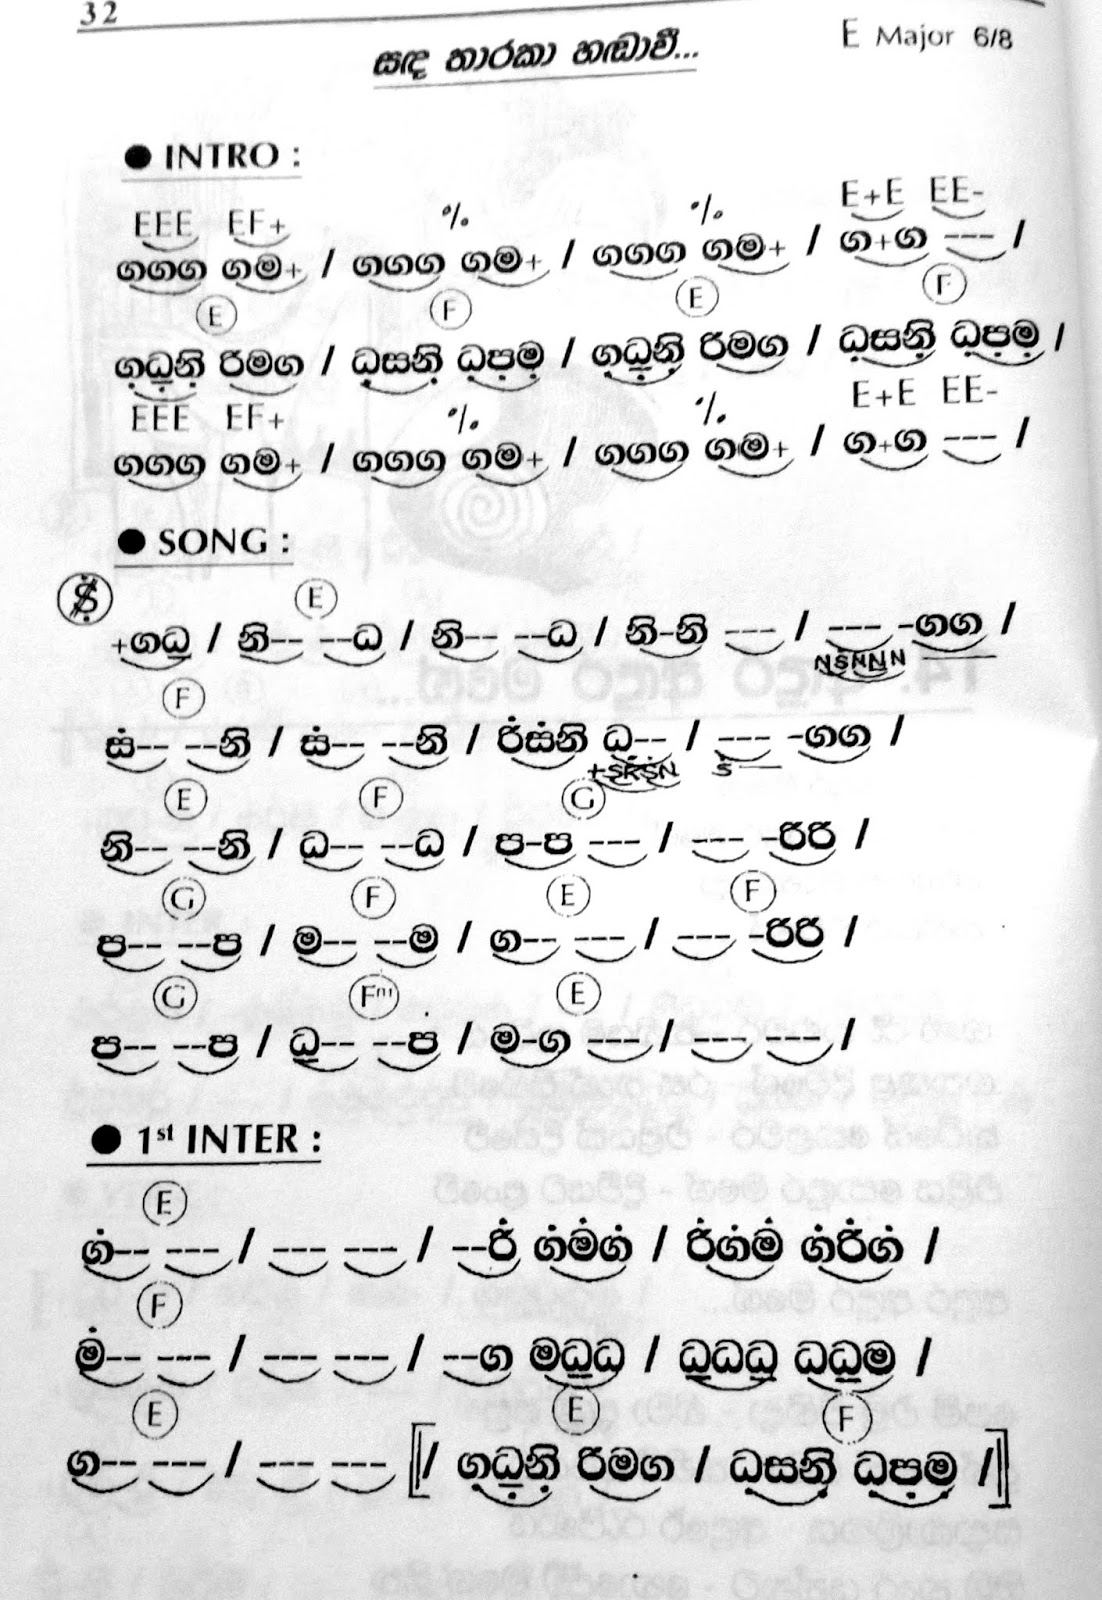 32
සඳ තාරකා හඬාවී...
E Major 6/8
● INTRO :
EEE EF+ % % E+E EE-
ගගග ගම+ / ගගග ගම+ / ගගග ගම+ / ග+ග --- /
E F E F
ග̣ධ̣නි̣ රිමග / ධ̣සනි̣ ධ̣ප̣ම̣ / ග̣ධ̣නි̣ රිමග / ධ̣සනි̣ ධ̣ප̣ම̣ /
EEE EF+ % % E+E EE-
ගගග ගම+ / ගගග ගම+ / ගගග ගම+ / ග+ග --- /
● SONG :
E
+ගධ / නි-- --ධ / නි-- --ධ / නි-නි --- / --- -ගග /
NṠNNN
F
ස̇-- --නි / ස̇-- --නි / රි̇ස̇නි ධ-- / --- -ගග /
+ṠṘṠN Ṡ
E F G
නි-- --නි / ධ-- --ධ / ප-ප --- / --- -රිරි /
G F E F
ප-- --ප / ම-- --ම / ග-- --- / --- -රිරි /
G Fm E
ප-- --ප / ධ-- --ප / ම-ග --- / --- --- /
● 1st INTER :
E
ග̇-- --- / --- --- / --රි̇ ග̇ම̇ග̇ / රි̇ග̇ම̇ ග̇රි̇ග̇ /
F
ම̇-- --- / --- --- / --ග මධධ / ධධධ ධධම /
E E F
ග-- --- / --- --- [/ ගධ̣නි̣ රිමග / ධ̣සනි̣ ධ̣ප̣ම̣ /]